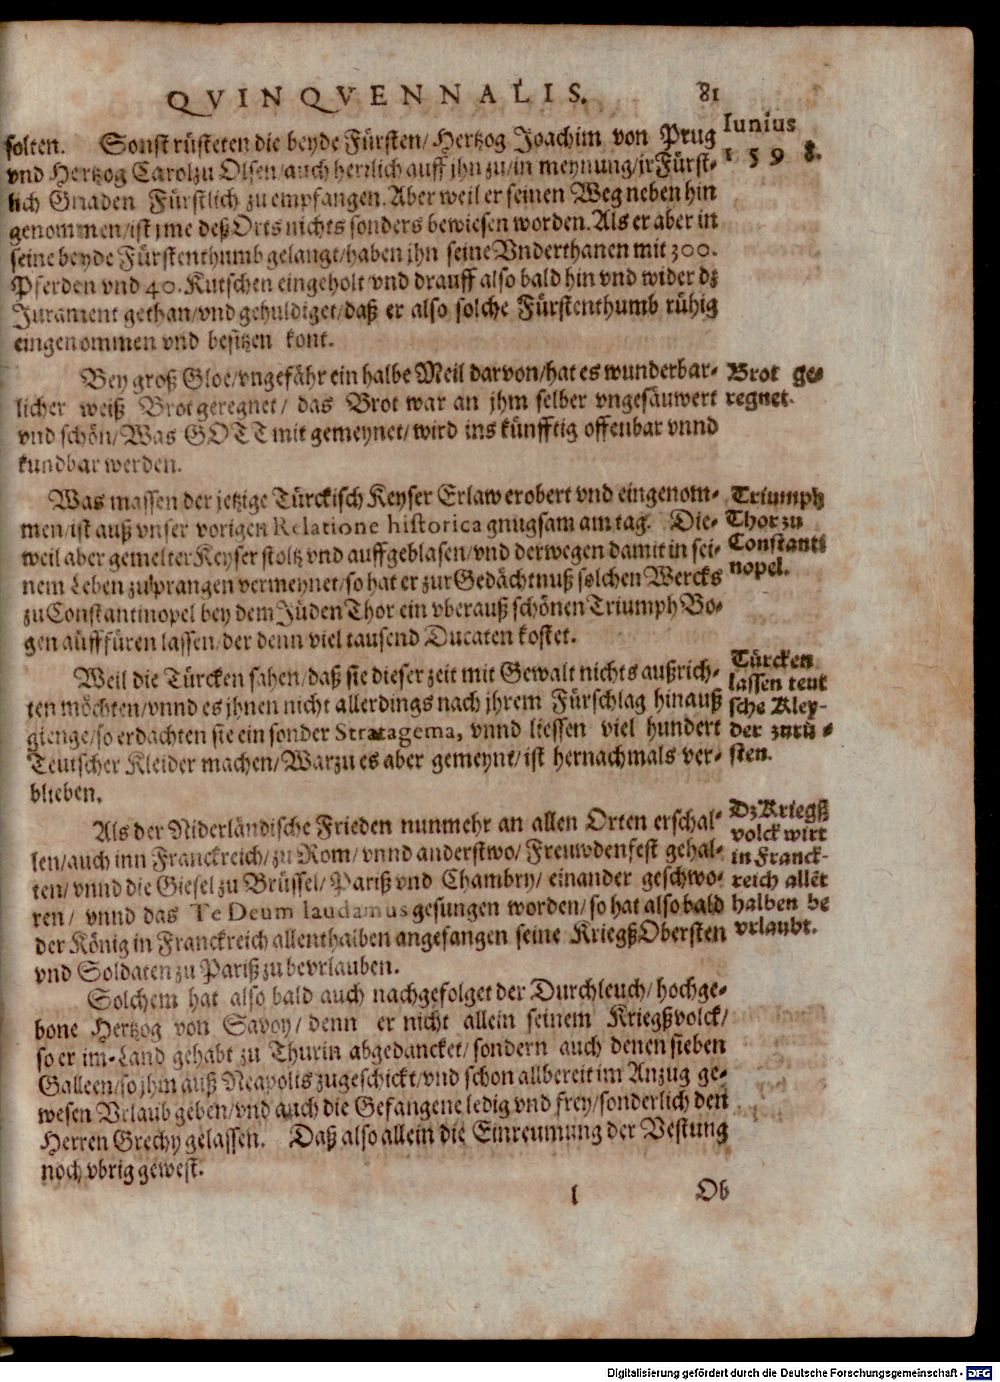 QVINQVENNALIS. 81
Iunius
1598.
solten. Sonst rüsteten die beyde Fürsten/ Hertzog Joachim von Prug
vnd Hertzog Carol zu Olsen/ auch herrlich auff jhn zu/ in meynung/ jr Fürst-
lich Gnaden Fürstlich zu empfangen. Aber weil er seinen Weg neben hin
genommen/ ist jme deß Orts nichts sonders bewiesen worden. Als er aber in
seine beyde Fürstenthumb gelangt/ haben jhn seine Vnderthanen mit 300.
Pferden vnd 40. Kutschen eingeholt vnd drauff also bald hin vnd wider dz
Jurament gethan/ vnd gehuldiget/ daß er also solche Fürstenthumb rühig
eingenommen vnd besitzen kont.
Bey groß Gloe/ vngefähr ein halbe Meil darvon/ hat es wunderbar-
licher weiß Brot geregnet/ das Brot war an jhm selber vngesäuwert
vnd schön/ Was GOTT mit gemeynet/ wird ins künfftig offenbar vnnd
kundbar werden.
Brot ge-
regnet.
Was massen der jetzige Türckisch Keyser Erlaw erobert vnd eingenom-
men/ ist auß vnser vorigen Relatione historica gnugsam am tag. Die-
weil aber gemelter Keyser stoltz vnd auffgeblasen/ vnd derwegen damit in sei-
nem Leben zu prangen vermeynet/ so hat er zur Gedächtnuß solchen Wercks
zu Constantinopel bey dem Jüden Thor ein vberauß schönen Triumph Bo-
gen auffführen lassen/ der denn viel tausend Ducaten kostet.
Triumph
Thor zu
Constanti
nopel.
Weil die Türcken sahen/ daß sie dieser zeit mit Gewalt nichts außrich-
ten möchten/ vnnd es jhnen nicht allerdings nach jhrem Fürschlag hinauß
gienge/ so erdachten sie ein sonder Stratagema, vnnd liessen viel hundert
Teutscher Kleider machen/ Warzu es aber gemeynt/ ist hernachmals ver-
blieben.
Türcken
lassen teut
sche Kley-
der zurü-
sten.
Als der Niderländische Frieden nunmehr an allen Orten erschal-
len/ auch inn Franckreich/ zu Rom/ vnnd anderstwo/ Freuwdenfest gehal-
ten/ vnnd die Giesel zu Brüssel/ Pariß vnd Chambry/ einander geschwo-
ren/ vnnd das Te Deum laudamus gesungen worden/ so hat also bald
der König in Franckreich allenthalben angefangen seine KriegßObersten
vnd Soldaten zu Pariß zu bevrlauben.
Dz Kriegß
volck wirt
in Franck-
reich allēt
halben be
vrlaubt.
Solchem hat also bald auch nachgefolget der Durchleuch/ hochge-
bone Hertzog von Savoy/ denn er nicht allein seinem Kriegßvolck/
so er im Land gehabt zu Thurin abgedancket/ sondern auch denen sieben
Galleen/ so jhm auß Neapolis zugeschickt/ vnd schon allbereit im Anzug ge-
wesen Vrlaub geben/ vnd auch die Gefangene ledig vnd frey/ sonderlich den
Herren Grechy gelassen. Daß also allein die Einreumung der Vestung
noch vbrig gewest.
l Ob
Digitalisierung gefördert durch die Deutsche Forschungsgemeinschaft - DFG